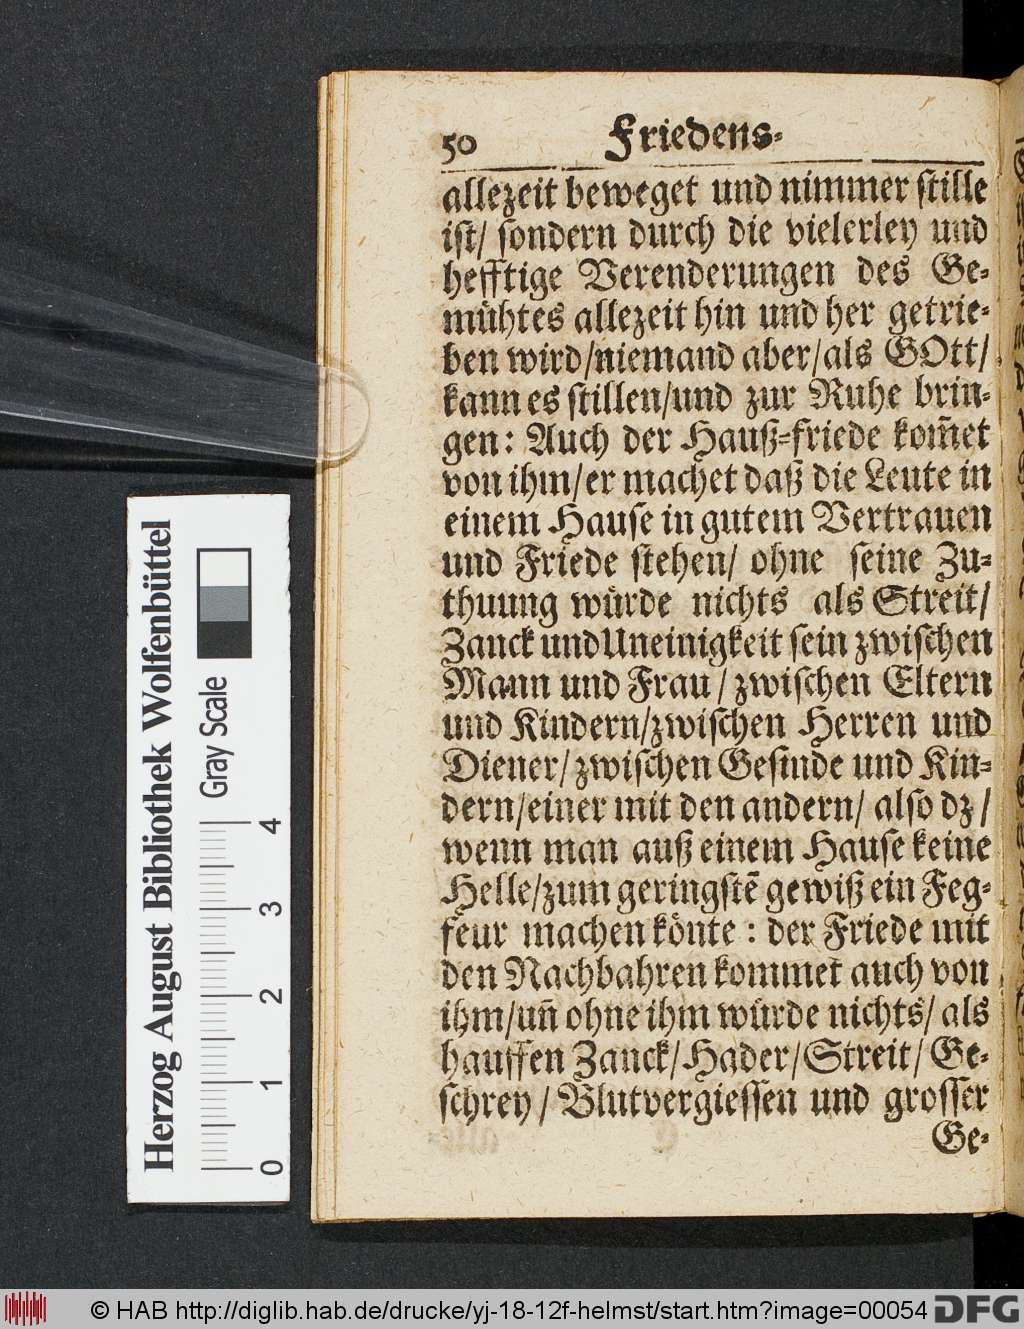 50 Friedens-
allezeit beweget und nimmer stille
ist/ sondern durch die vielerley und
hefftige Verenderungen des Ge-
mühtes allezeit hin und her getrie-
ben wird/niemand aber/als GOtt/
kann es stillen/und zur Ruhe brin-
gen: Auch der Hauß-friede kom̃et
von ihm/er machet daß die Leute in
einem Hause in gutem Vertrauen
und Friede stehen/ ohne seine Zu-
thuung würde nichts als Streit/
Zanck und Uneinigkeit sein zwischen
Mann und Frau/ zwischen Eltern
und Kindern/zwischen Herren und
Diener/ zwischen Gesinde und Kin-
dern/einer mit den andern/ also dz/
wenn man auß einem Hause keine
Helle/zum geringstẽ gewiß ein Feg-
feur machen könte: der Friede mit
den Nachbahren kommet auch von
ihm/uñ ohne ihm würde nichts/ als
hauffen Zanck/Hader/Streit/ Ge-
schrey/ Blutvergiessen und grosser
Ge-
Herzog August Bibliothek Wolfenbüttel
Gray Scale
0 1 2 3 4
© HAB http://diglib.hab.de/drucke/yj-18-12f-helmst/start.htm?image=00054 DFG